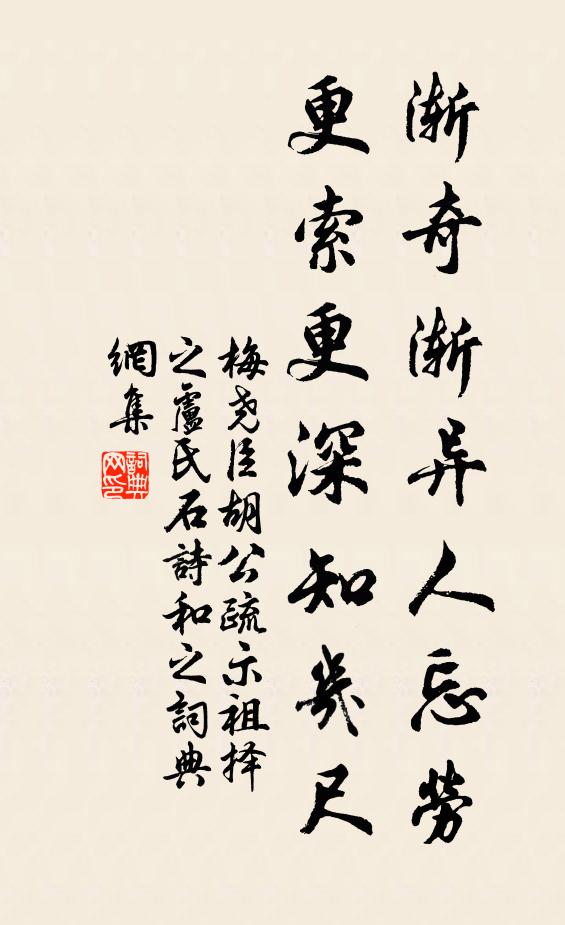 渐奇渐异人忘劳
更索更深知幾尺
梅尧臣胡公疏示祖择
之盧氏石詩和之詞典
網集
詞典網印